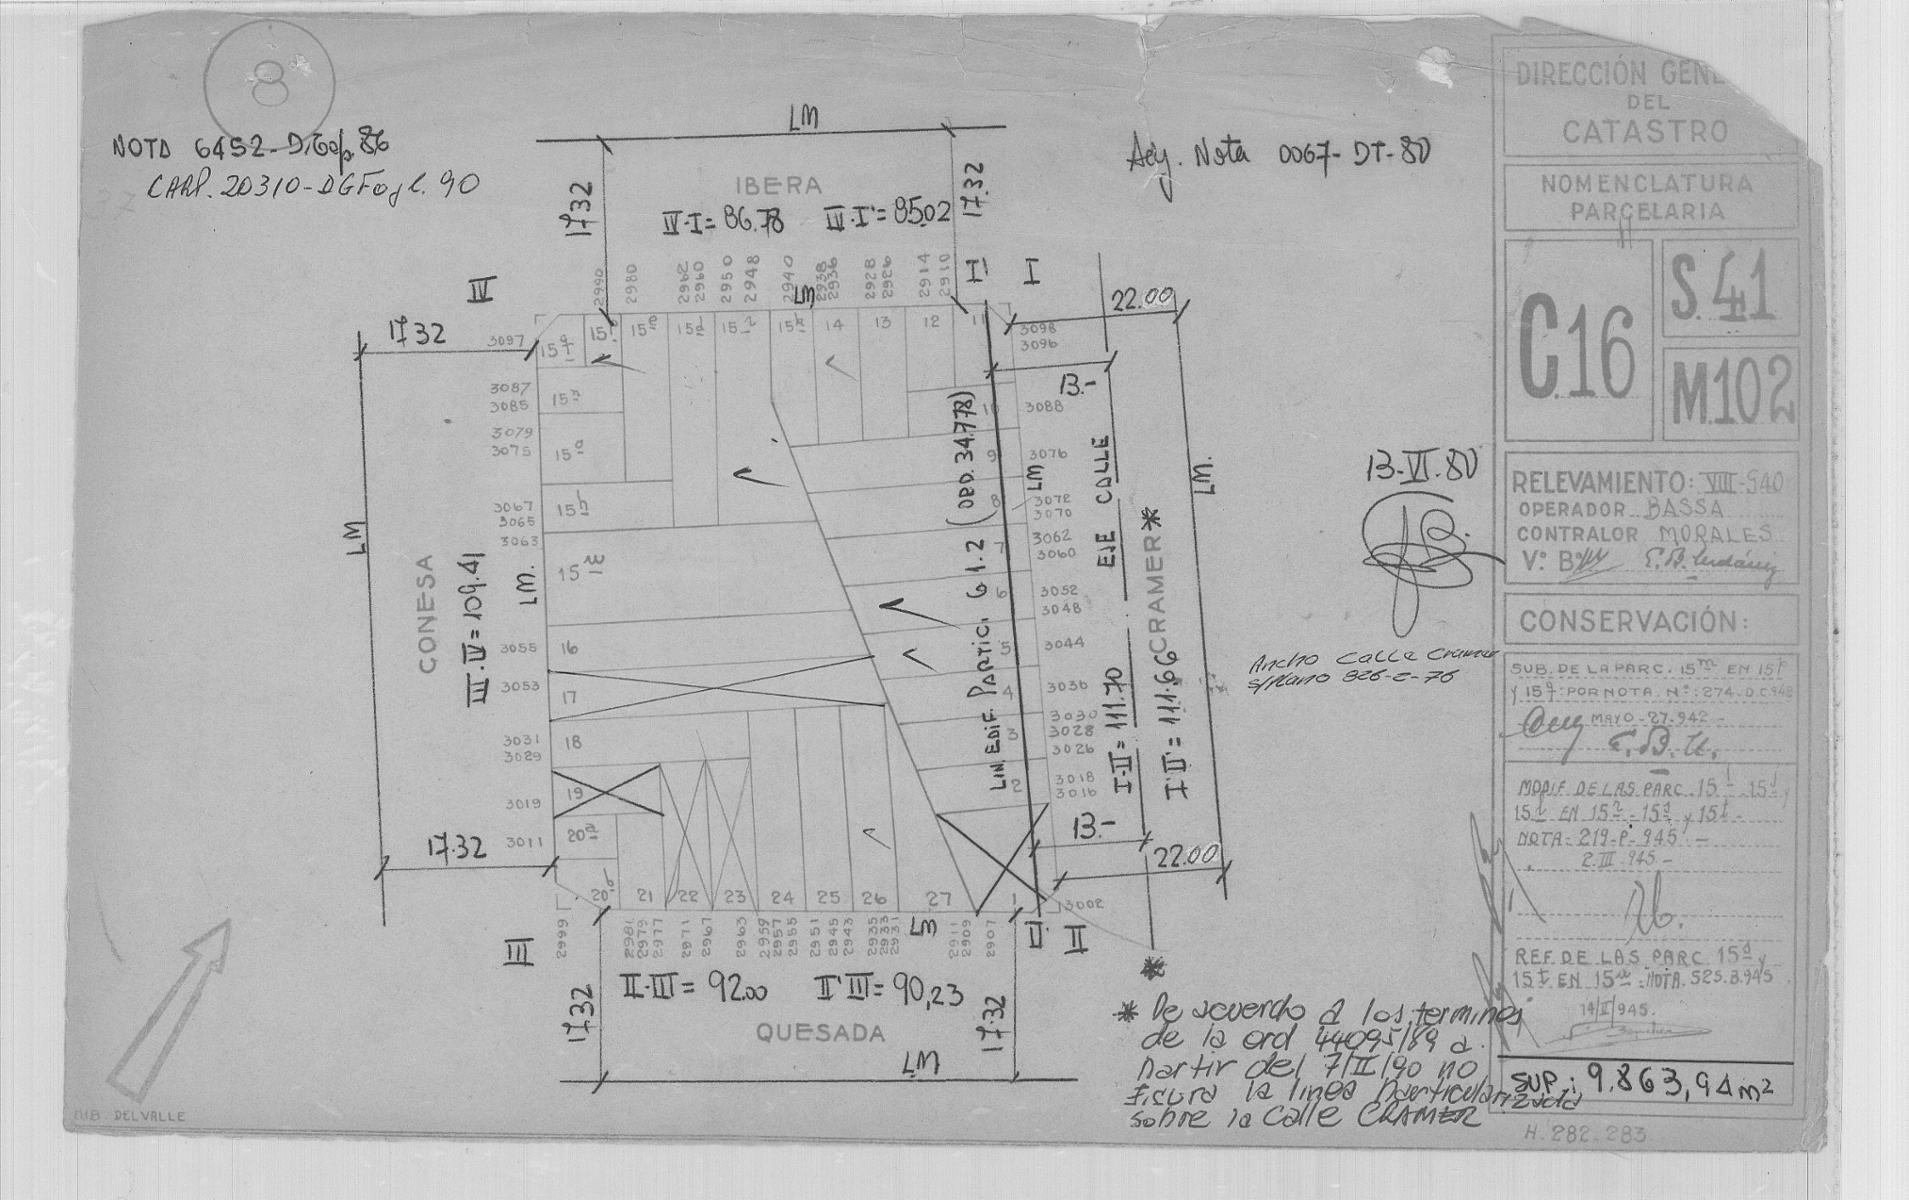 8
NOTA 6452-
CARP. 20310-
LM
17.32
17.32
IBERA
IV-I= 86.78 III-I'= 85.02
Adj. Nota 0067-DT-80
IV
I'
I
2990
2980
2962
2960
2950
2948
2940
2938
2936
2928
2926
2914
2910
LM
22.00
17.32
3097
3087
3085
3079
3075
3067
3065
3063
3055
3053
3031
3029
3019
3011
17.32
LM
CONESA
III-IV= 109.41
LM.
15
15
15
15
14
13
12
11
10
9
8
7
6
5
4
3
2
1
15
15
15
15
16
17
18
19
20
20
21
22
23
24
25
26
27
LIN. EDIF. PARTIC. 6.1.2 (ORD. 34.778)
13.-
3098
3096
3088
3076
3072
3070
3062
3060
3052
3048
3044
3036
3030
3028
3026
3018
3016
3002
LM
EJE CALLE
I-II= 111.70
CRAMER*
I'II'= 111.66
LM.
13.-
22.00
13-VI-80
Ancho Calle Cramer
s/plano 826-C-76
III
2999
2981
2979
2977
2971
2967
2963
2959
2957
2955
2951
2945
2943
2935
2933
2931
LM
2911
2909
2907
II'
II
17.32
II-III= 92.00 II'III= 90,23
17.32
QUESADA
LM
*
* De acuerdo a los terminos
de la ord 44095/89 a
partir del 7/II/90 no
figura la linea particularizada
sobre la calle CRAMER
DIB. DELVALLE
DIRECCIÓN
DEL
CATASTRO
NOMENCLATURA
PARCELARIA
C.16
S.41
M.102
RELEVAMIENTO: VIII-940
OPERADOR BASSA
CONTRALOR MORALES
V.° B.°
CONSERVACIÓN:
SUB. DE LA PARC. 15m EN 15p
y 15q: POR NOTA. N°: 274-D.C.942
MAYO-27-942-
MODIF. DE LAS PARC. 15
15 EN 15r-15s y 15t-
NOTA-219-P-945-
2-III-945-
REF. DE LAS PARC. 15s y
15t EN 15u-NOTA 525.B.945
SUP.: 9.863,94 m2
H. 282-283